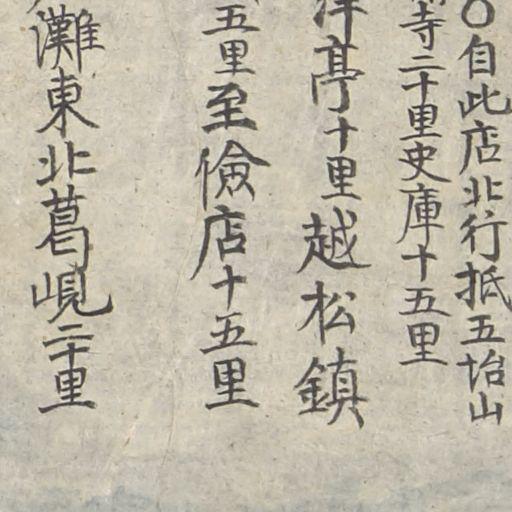 〇自此店北行抵五冶山
寺二十里史庫十五里
亭十里越松鎮
五里至儉店十五里
灘東北葛峴二十里